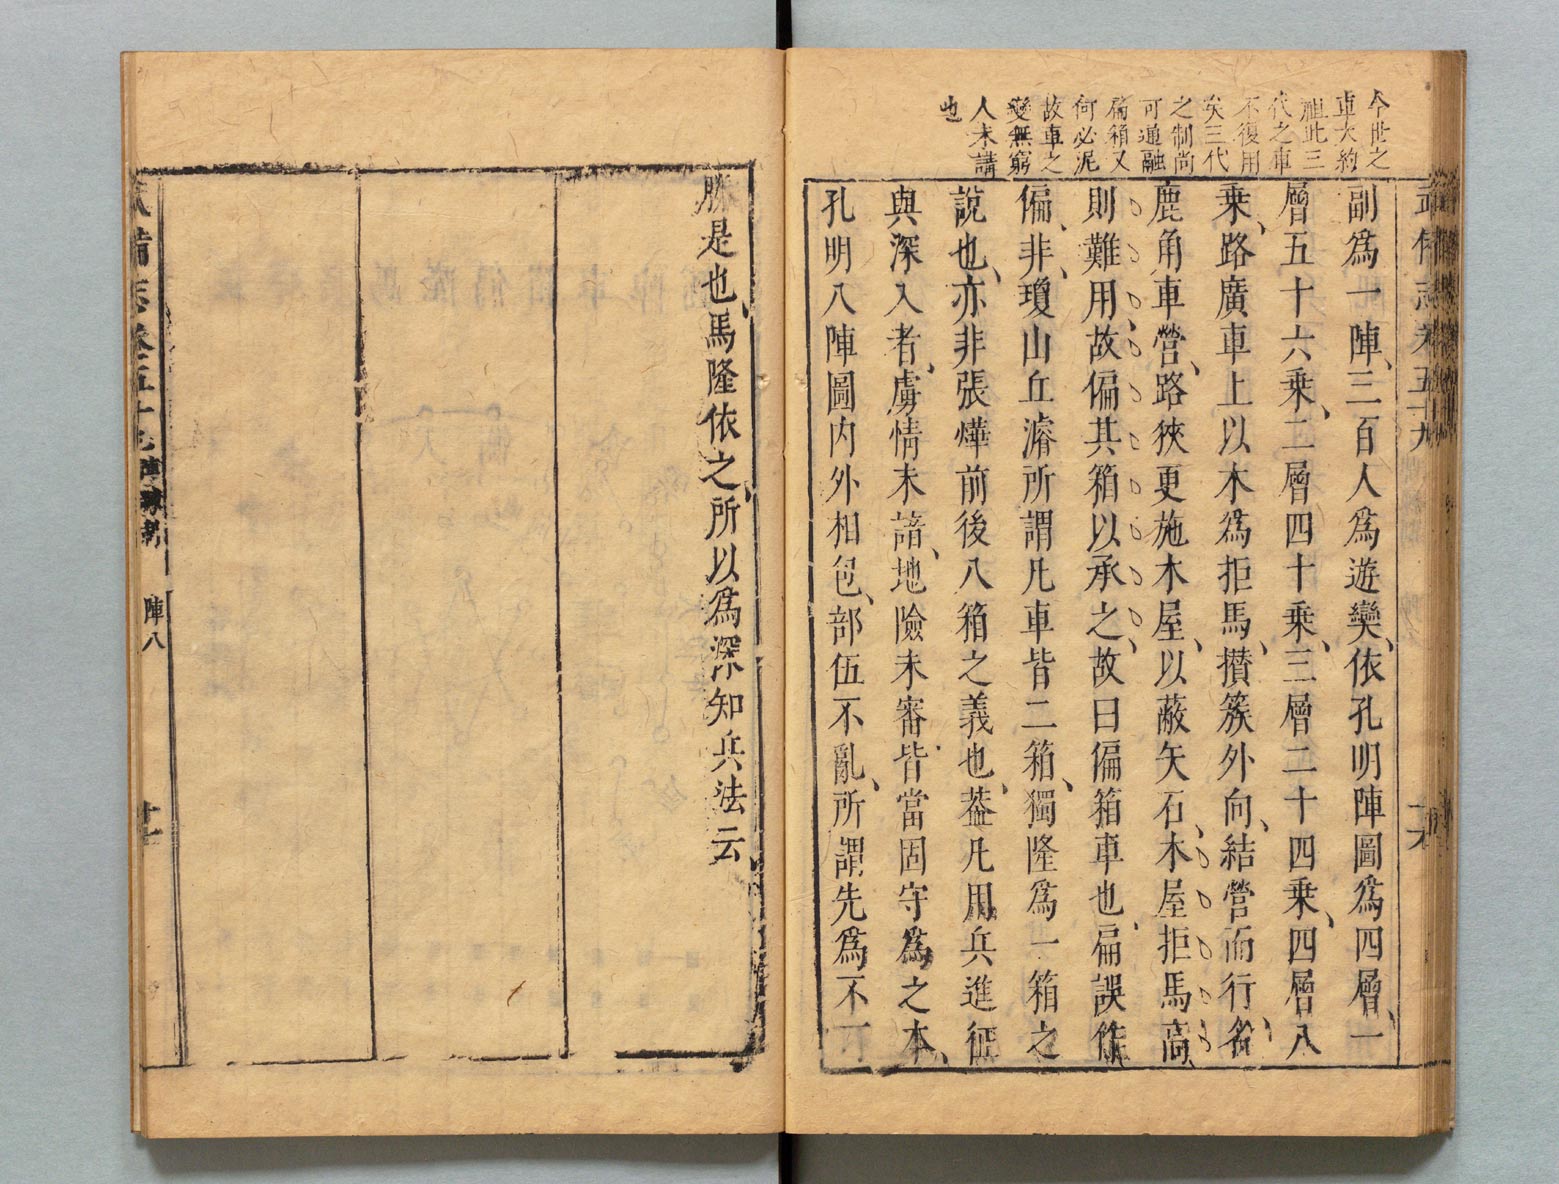 今世之
車大約
祖此三
代之車
不復用
矣三代
之制尚
可通融
扁箱又
何必泥
故車之
變無窮
人未講
也
武備志卷五十九
十六
副爲一陣三百人爲遊奕依孔明陣圖爲四層一
層五十六乘二層四十乘三層二十四乘四層八
乘路廣車上以木爲拒馬攢簇外向結營而行名
鹿角車營路狹更施木屋以蔽矢石木屋拒馬高
則難用故偏其箱以承之故曰偏箱車也扁誤作
偏非瓊山丘濬所謂凡車皆二箱獨隆爲一箱之
說也亦非張燁前後八箱之義也蓋凡用兵進征
與深入者虜情未諳地險未審皆當固守爲之本
孔明八陣圖内外相包部伍不亂所謂先爲不可
勝是也馬隆依之所以爲深知兵法云
武備志卷五十九 陣練制 陣八
十七